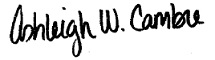 Ashleigh W. Cambre